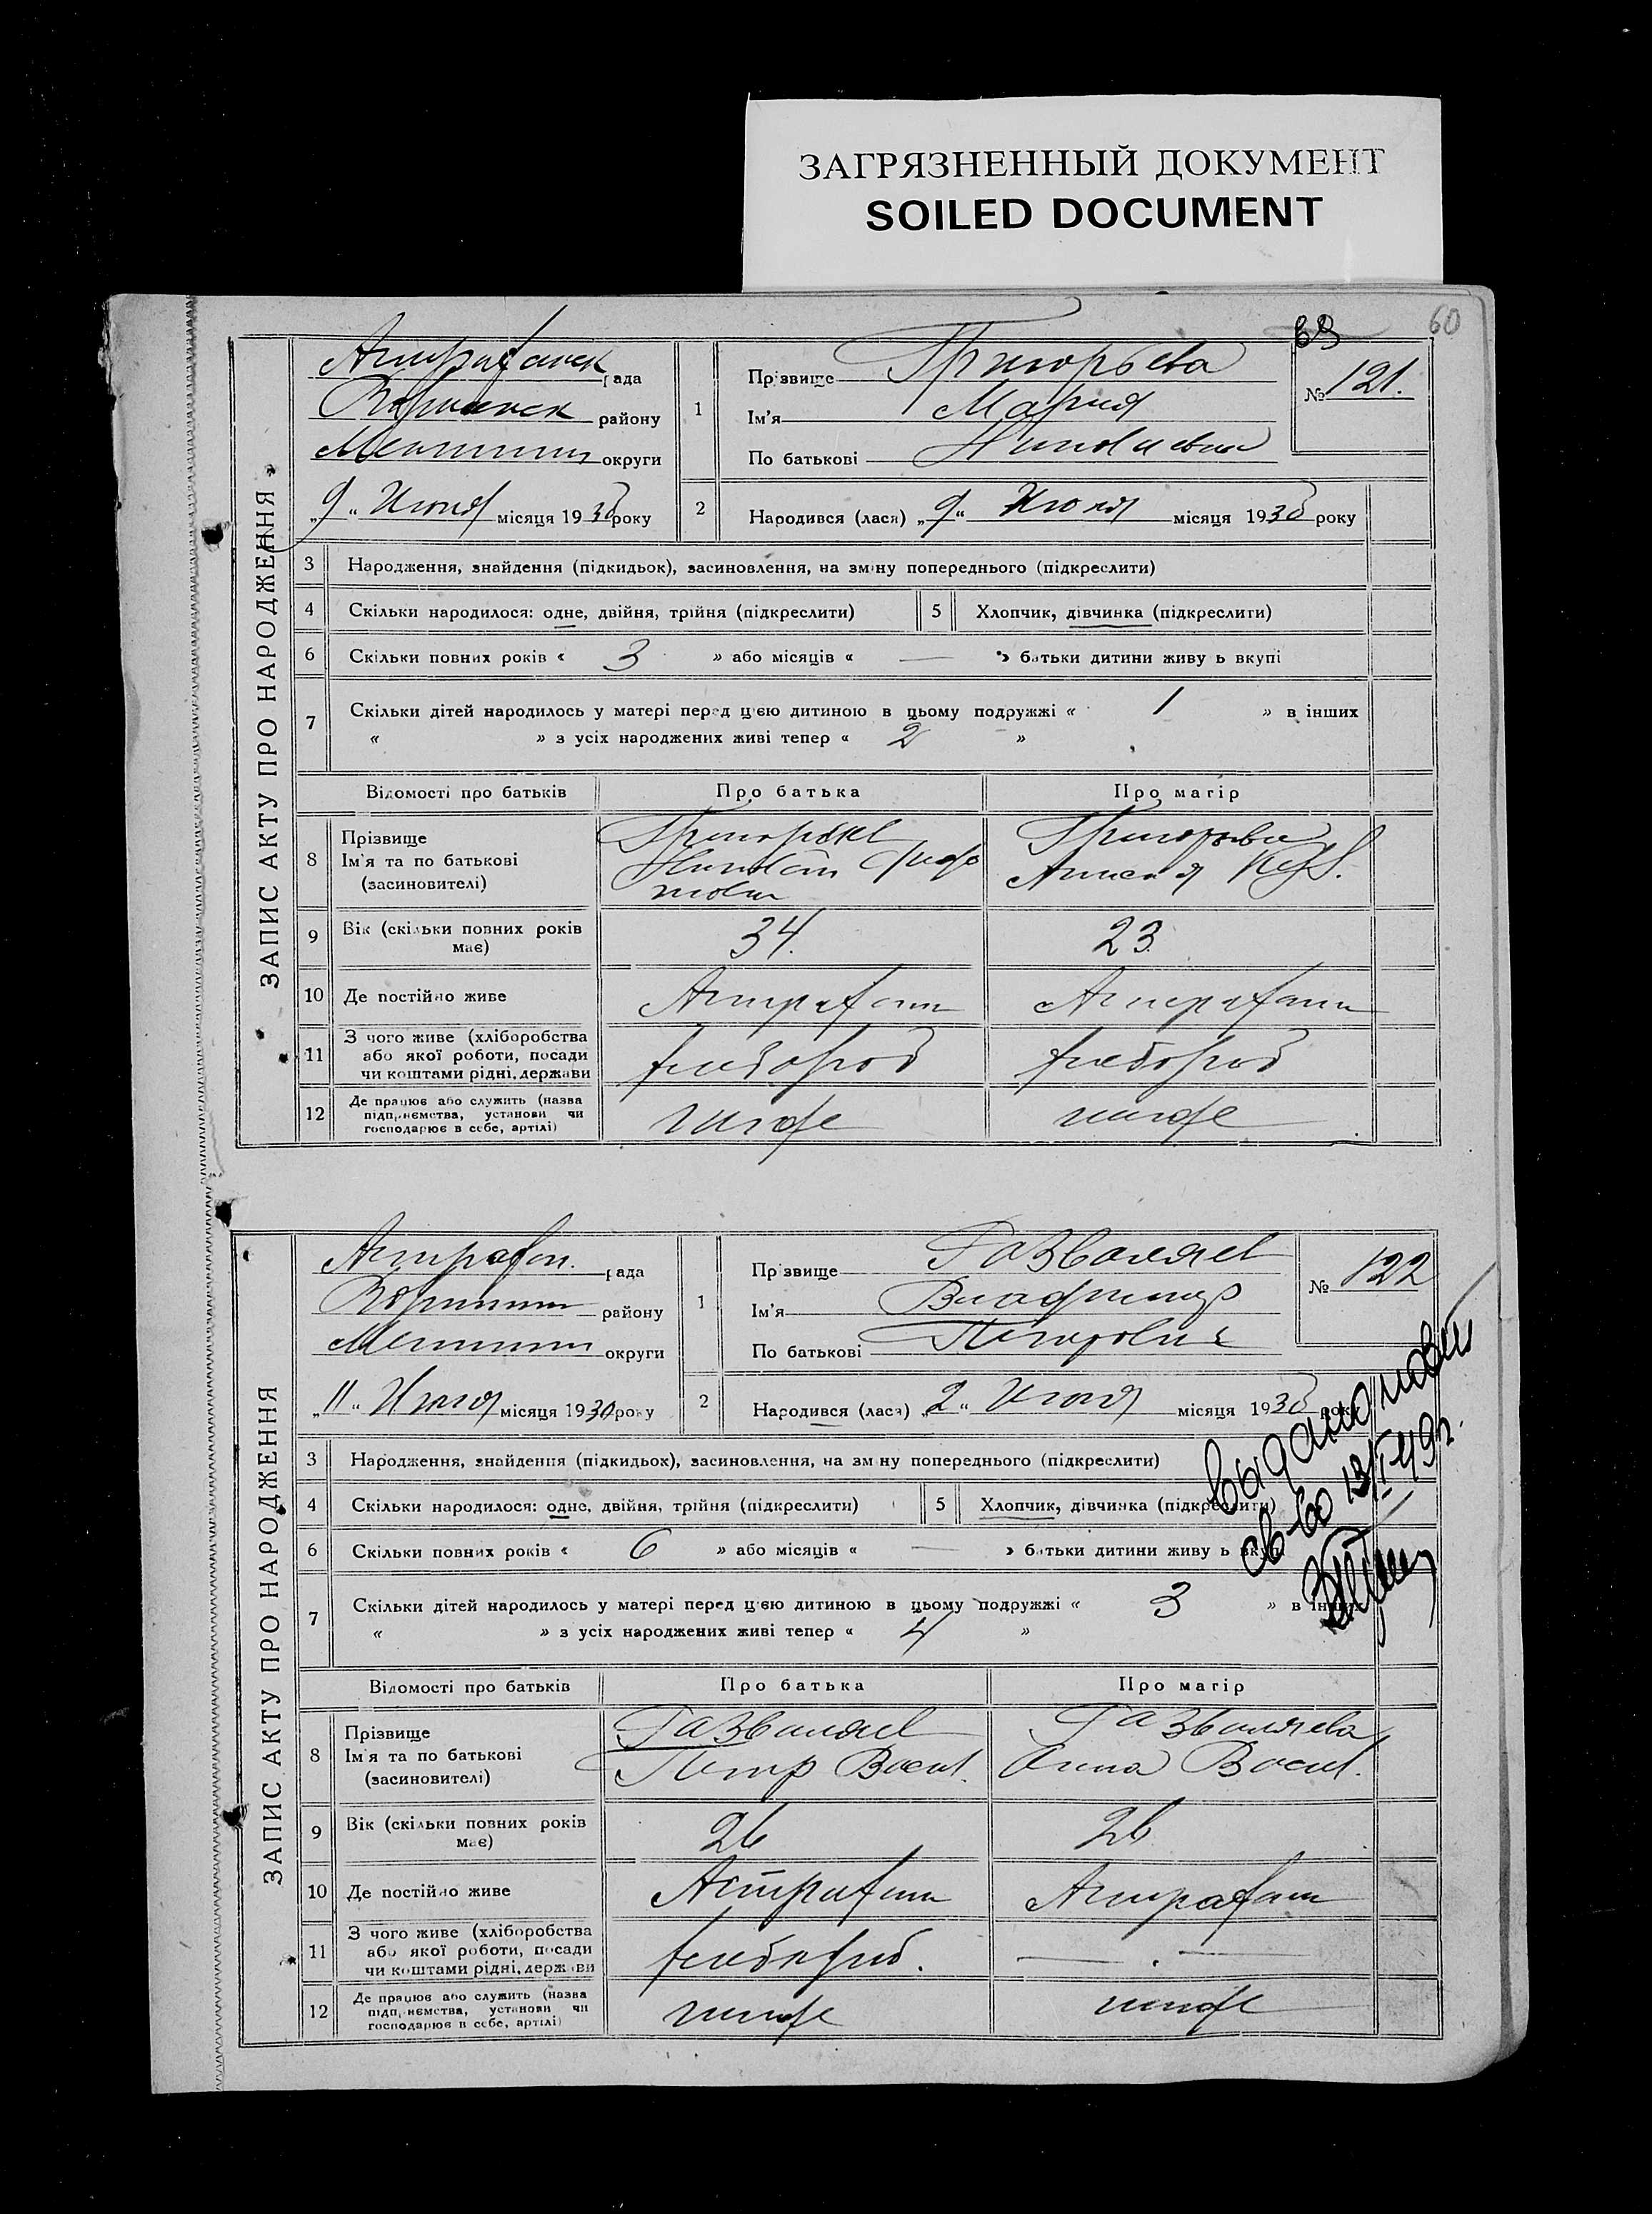 ЗАГРЯЗНЕННЫЙ ДОКУМЕНТ
SOILED DOCUMENT
60
ЗАПИС АКТУ ПРО НАРОДЖЕННЯ
рада
району
округи
„9“ Июня місяця 1930 року
1
Прізвище Григорьева
Ім'я Мария
По батькові
№ 121.
2
Народився (лася) „9“ Июня місяця 1930 року
3
Народження, знайдення (підкидьок), засиновлення, на зміну попереднього (підкреслити)
4
Скільки народилося: одне, двійня, трійня (підкреслити)
5
Хлопчик, дівчинка (підкреслити)
6
Скільки повних років « 3 » або місяців « — » батьки дитини живуть вкупі
7
Скільки дітей народилось у матері перед цією дитиною в цьому подружжі « 1 » в інших
« » з усіх народжених живі тепер « 2 »
Відомості про батьків
Про батька
Про матір
8
Прізвище
Ім'я та по батькові
(засиновителі)
Григорьев
Григорьева
9
Вік (скільки повних років
має)
34.
23.
10
Де постійно живе
11
З чого живе (хліборобства
або якої роботи, посади
чи коштами рідні, держави
хлебороб
хлебороб
12
Де працює або служить (назва
підприємства, установи чи
господарює в себе, артілі)
ЗАПИС АКТУ ПРО НАРОДЖЕННЯ
рада
району
округи
„11“ Июня місяця 1930 року
1
Прізвище
Ім'я Владимир
По батькові Петрович
№ 122
2
Народився (лася) „2“ Июня місяця 1930 року
3
Народження, знайдення (підкидьок), засиновлення, на зміну попереднього (підкреслити)
4
Скільки народилося: одне, двійня, трійня (підкреслити)
5
Хлопчик, дівчинка (підкреслити)
6
Скільки повних років « 6 » або місяців « — » батьки дитини живуть вкупі
7
Скільки дітей народилось у матері перед цією дитиною в цьому подружжі « 3 » в інших
« » з усіх народжених живі тепер « 4 »
Відомості про батьків
Про батька
Про матір
8
Прізвище
Ім'я та по батькові
(засиновителі)
Петр Васил.
Анна Васил.
9
Вік (скільки повних років
має)
26
26
10
Де постійно живе
11
З чого живе (хліборобства
або якої роботи, посади
чи коштами рідні, держави
хлебороб.
— . —
12
Де працює або служить (назва
підприємства, установи чи
господарює в себе, артілі)
св-во 13/I-49г.